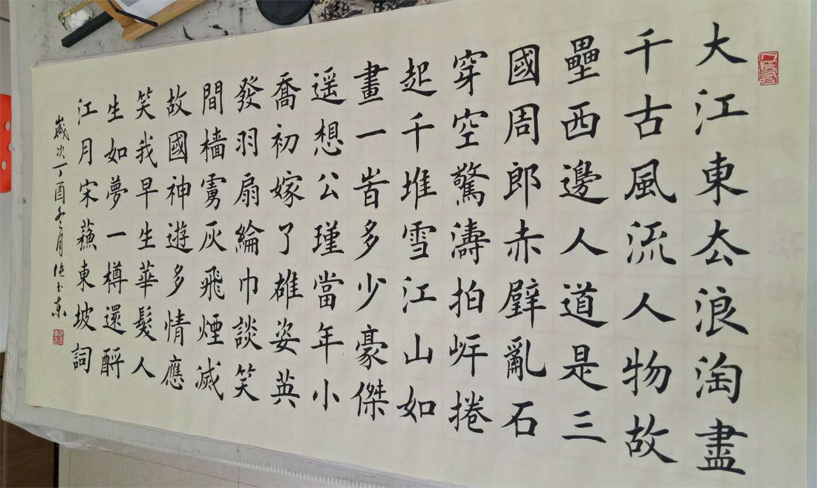 大江東去浪淘盡
千古風流人物故
壘西邊人道是三
國周郎赤壁亂石
穿空驚濤拍岍捲
起千堆雪江山如
畫一旹多少豪傑
遥想公瑾當年小
喬初嫁了雄姿英
發羽扇綸巾談笑
間檣雩灰飛煙滅
故國神遊多情應
笑我早生華髮人
生如夢一樽還酹
江月宋蘓東坡詞
歲次丁酉冬月